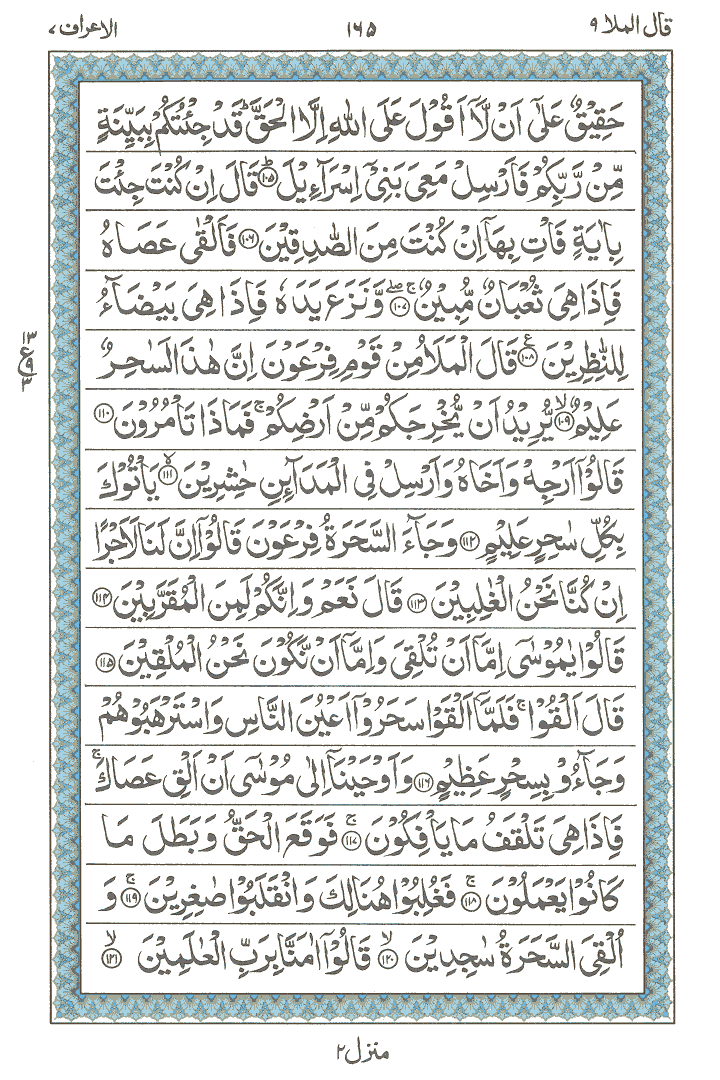 قال الملا ٩
١٦٥
الاعراف ٧
حَقِيْقٌ عَلٰۤى اَنْ لَّاۤ اَقُوْلَ عَلَى اللّٰهِ اِلَّا الْحَقَّ ؕ قَدْ جِئْتُكُمْ بِبَيِّنَةٍ
مِّنْ رَّبِّكُمْ فَاَرْسِلْ مَعِيَ بَنِيْۤ اِسْرَآءِيْلَ ؕ ﴿۱۰۵﴾ قَالَ اِنْ كُنْتَ جِئْتَ
بِاٰيَةٍ فَاْتِ بِهَاۤ اِنْ كُنْتَ مِنَ الصّٰدِقِيْنَ ﴿۱۰۶﴾ فَاَلْقٰى عَصَاهُ
فَاِذَا هِيَ ثُعْبَانٌ مُّبِيْنٌ ۚۖ ﴿۱۰۷﴾ وَّنَزَعَ يَدَهٗ فَاِذَا هِيَ بَيْضَآءُ
لِلنّٰظِرِيْنَ ﴿۱۰۸﴾ ع قَالَ الْمَلَاُ مِنْ قَوْمِ فِرْعَوْنَ اِنَّ هٰذَا لَسٰحِرٌ
عَلِيْمٌ ۙ ﴿۱۰۹﴾ يُّرِيْدُ اَنْ يُّخْرِجَكُمْ مِّنْ اَرْضِكُمْ ۚ فَمَاذَا تَاْمُرُوْنَ ﴿۱۱۰﴾
قَالُوْۤا اَرْجِهْ وَاَخَاهُ وَاَرْسِلْ فِى الْمَدَآئِنِ حٰشِرِيْنَ ۙ ﴿۱۱۱﴾ يَاْتُوْكَ
بِكُلِّ سٰحِرٍ عَلِيْمٍ ﴿۱۱۲﴾ وَجَآءَ السَّحَرَةُ فِرْعَوْنَ قَالُوْۤا اِنَّ لَنَا لَاَجْرًا
اِنْ كُنَّا نَحْنُ الْغٰلِبِيْنَ ﴿۱۱۳﴾ قَالَ نَعَمْ وَاِنَّكُمْ لَمِنَ الْمُقَرَّبِيْنَ ﴿۱۱۴﴾
قَالُوْا يٰمُوْسٰۤى اِمَّاۤ اَنْ تُلْقِيَ وَاِمَّاۤ اَنْ نَّكُوْنَ نَحْنُ الْمُلْقِيْنَ ﴿۱۱۵﴾
قَالَ اَلْقُوْا ۚ فَلَمَّاۤ اَلْقَوْا سَحَرُوْۤا اَعْيُنَ النَّاسِ وَاسْتَرْهَبُوْهُمْ
وَجَآءُوْ بِسِحْرٍ عَظِيْمٍ ﴿۱۱۶﴾ وَاَوْحَيْنَاۤ اِلٰى مُوْسٰۤى اَنْ اَلْقِ عَصَاكَ ۚ
فَاِذَا هِيَ تَلْقَفُ مَا يَاْفِكُوْنَ ۚ ﴿۱۱۷﴾ فَوَقَعَ الْحَقُّ وَبَطَلَ مَا
كَانُوْا يَعْمَلُوْنَ ۚ ﴿۱۱۸﴾ فَغُلِبُوْا هُنَالِكَ وَانْقَلَبُوْا صٰغِرِيْنَ ۚ ﴿۱۱۹﴾ وَ
اُلْقِيَ السَّحَرَةُ سٰجِدِيْنَ ۙ ﴿۱۲۰﴾ قَالُوْۤا اٰمَنَّا بِرَبِّ الْعٰلَمِيْنَ ۙ ﴿۱۲۱﴾
منزل ٢